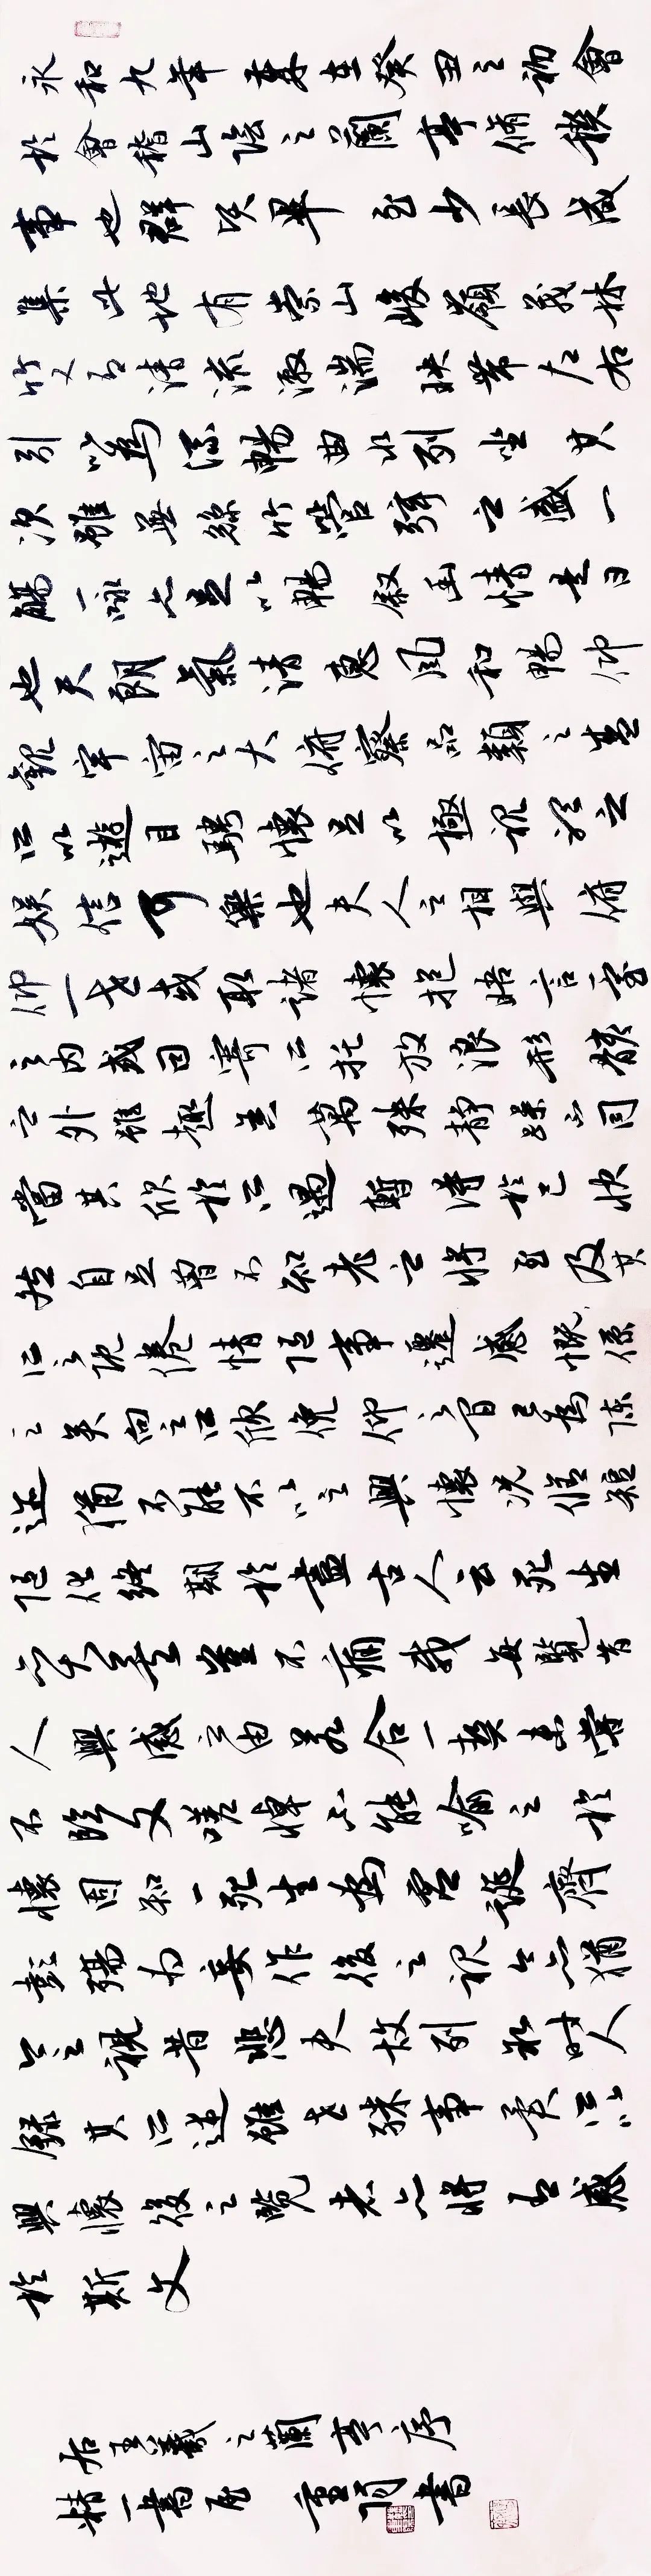 永和九年歲在癸丑之初會
於會稽山陰之蘭亭脩禊
事也群賢畢至少長咸
集此地有崇山峻嶺茂林
竹又有清流激湍映帶左右
引以為流觴曲水列坐其
次雖無絲竹管弦之盛一
觴一詠亦足以暢叙幽情是日
也天朗氣清惠風和暢仰
觀宇宙之大俯察品類之盛
所以遊目騁懷足以極視聽之
娛信可樂也夫人之相與俯
仰一世或取諸懷抱晤言室
之內或因寄所托放浪形骸
之外雖趣舍萬殊靜躁不同
當其欣於所遇暫得於己快
然自足曾不知老之將至及其
所之既倦情隨事遷感慨係
之矣向之所欣俛仰之間已為陳
迹猶不能不以之興懷況脩短
隨化終期於盡古人云死生
亦大矣豈不痛哉每覽昔
人興感之由若合一契未嘗
不臨文嗟悼不能喻之於
懷固知一死生為虛誕齊
彭殤為妄作後之視今亦猶
今之視昔悲夫故列敘時人
錄其所述雖世殊事異所以
興懷後之覽者亦將有感
於斯文
右王羲之蘭亭序
精一書屋 書